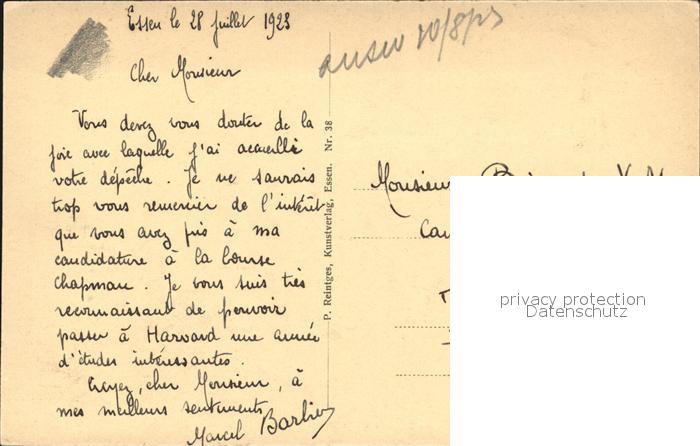 Essen le 28 juillet 1923
answ 10/8/23
Cher Monsieur
Vous devez vous douter de la
joie avec laquelle j'ai accueilli
votre dépêche. Je ne saurais
trop vous remercier de l'intérêt
que vous avez pris à ma
candidature à la bourse
Chapman. Je vous suis très
reconnaissant de pouvoir
passer à Harvard une année
d'études intéressantes.
Croyez, cher Monsieur, à
mes meilleurs sentiments
Marcel Barbier
P. Reintges, Kunstverlag, Essen. Nr. 38
Monsieur
privacy protection
Datenschutz